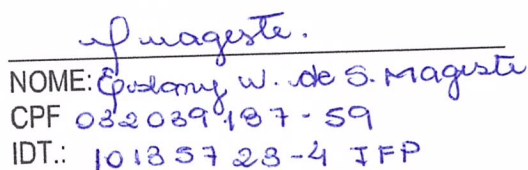 Mageste.
NOME: W. de S. Mageste
CPF 032039187-59
IDT.: 10135723-4 IFP